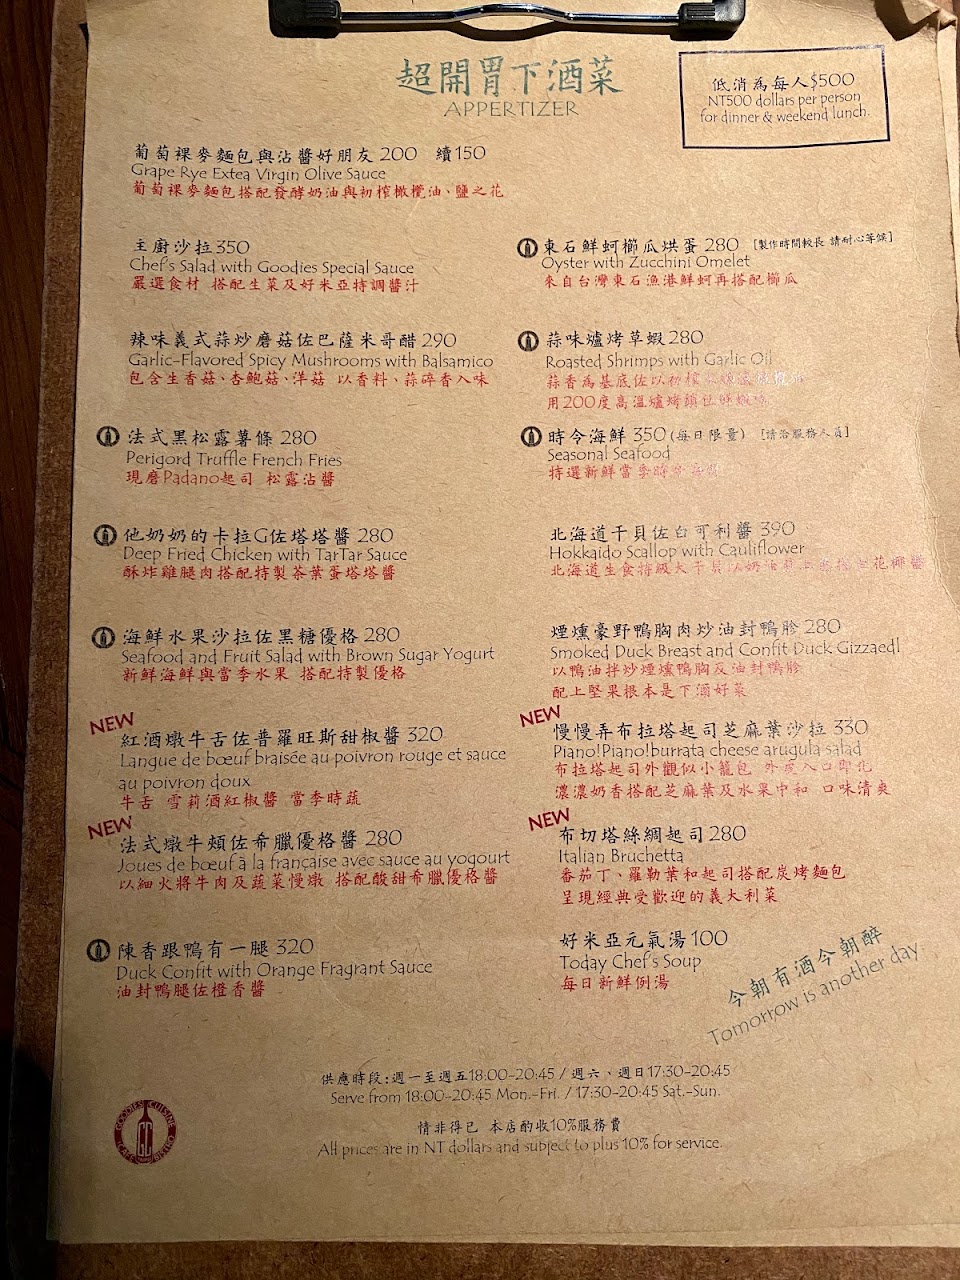 超開胃下酒菜
APPERTIZER
低消為每人$500
NT500 dollars per person
for dinner & weekend lunch.
葡萄裸麥麵包與沾醬好朋友 200 續150
Grape Rye Extea Virgin Olive Sauce
葡萄裸麥麵包搭配發酵奶油與初榨橄欖油、鹽之花
主廚沙拉350
Chef's Salad with Goodies Special Sauce
嚴選食材 搭配生菜及好米亞特調醬汁
辣味義式蒜炒磨菇佐巴薩米哥醋290
Garlic-Flavored Spicy Mushrooms with Balsamico
包含生香菇、杏鮑菇、洋菇 以香料、蒜碎香入味
法式黑松露薯條 280
Perigord Truffle French Fries
現磨Padano起司 松露沾醬
他奶奶的卡拉G佐塔塔醬 280
Deep Fried Chicken with TarTar Sauce
酥炸雞腿肉搭配特製茶葉蛋塔塔醬
海鮮水果沙拉佐黑糖優格280
Seafood and Fruit Salad with Brown Sugar Yogurt
新鮮海鮮與當季水果 搭配特製優格
NEW
紅酒燉牛舌佐普羅旺斯甜椒醬 320
Langue de bœuf braisée au poivron rouge et sauce
au poivron doux
牛舌 雪莉酒紅椒醬 當季時蔬
NEW
法式燉牛頰佐希臘優格醬 280
Joues de bœuf à la française avec sauce au yogourt
以細火將牛肉及蔬菜慢燉 搭配酸甜希臘優格醬
陳香跟鴨有一腿 320
Duck Confit with Orange Fragrant Sauce
油封鴨腿佐橙香醬
東石鮮蚵櫛瓜烘蛋 280 [製作時間較長 請耐心等候]
Oyster with Zucchini Omelet
來自台灣東石漁港鮮蚵再搭配櫛瓜
蒜味爐烤草蝦280
Roasted Shrimps with Garlic Oil
蒜香為基底佐以初榨
用200度高溫爐烤鎖住鮮
時令海鮮 350 (每日限量) [請洽服務人員]
Seasonal Seafood
特選新鮮當季時令
北海道干貝佐白可利醬 390
Hokkaido Scallop with Cauliflower
北海道生食特級大干貝以奶油 花椰醬
煙燻豪野鴨胸肉炒油封鴨胗 280
Smoked Duck Breast and Confit Duck Gizzaedl
以鴨油拌炒煙燻鴨胸及油封鴨胗
配上堅果根本是下酒好菜
NEW
慢慢弄布拉塔起司芝麻葉沙拉 330
Piano!Piano!burrata cheese arugula salad
布拉塔起司外觀似小籠包 外皮入口即化
濃濃奶香搭配芝麻葉及水果中和 口味清爽
NEW
布切塔絲綢起司280
Italian Bruchetta
番茄丁、羅勒葉和起司搭配炭烤麵包
呈現經典受歡迎的義大利菜
好米亞元氣湯100
Today Chef's Soup
每日新鮮例湯
今朝有酒今朝醉
Tomorrow is another day
供應時段:週一至週五18:00-20:45 / 週六、週日17:30-20:45
Serve from 18:00-20:45 Mon.-Fri. / 17:30-20:45 Sat.-Sun.
情非得已 本店酌收10%服務費
All prices are in NT dollars and subject to plus 10% for service.
GOODIES CUISINE
GC
CAFE BISTRO